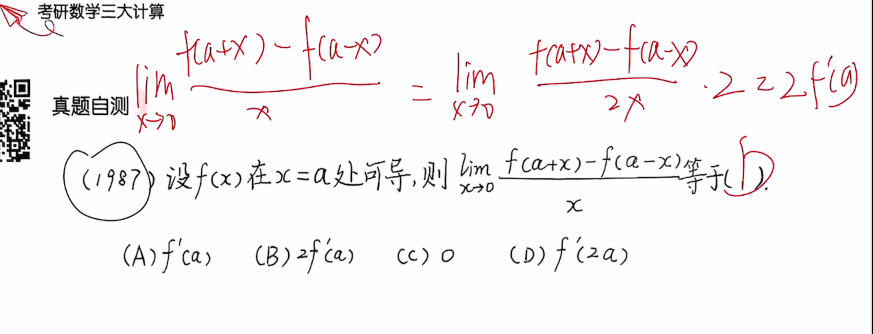 考研数学三大计算
lim x→0 f(a+x)-f(a-x) / x = lim x→0 f(a+x)-f(a-x) / 2x · 2 = 2f'(a)
真题自测
(1987) 设f(x)在x=a处可导,则 lim x→0 f(a+x)-f(a-x) / x 等于(b).
(A) f'(a) (B) 2f'(a) (C) 0 (D) f'(2a)